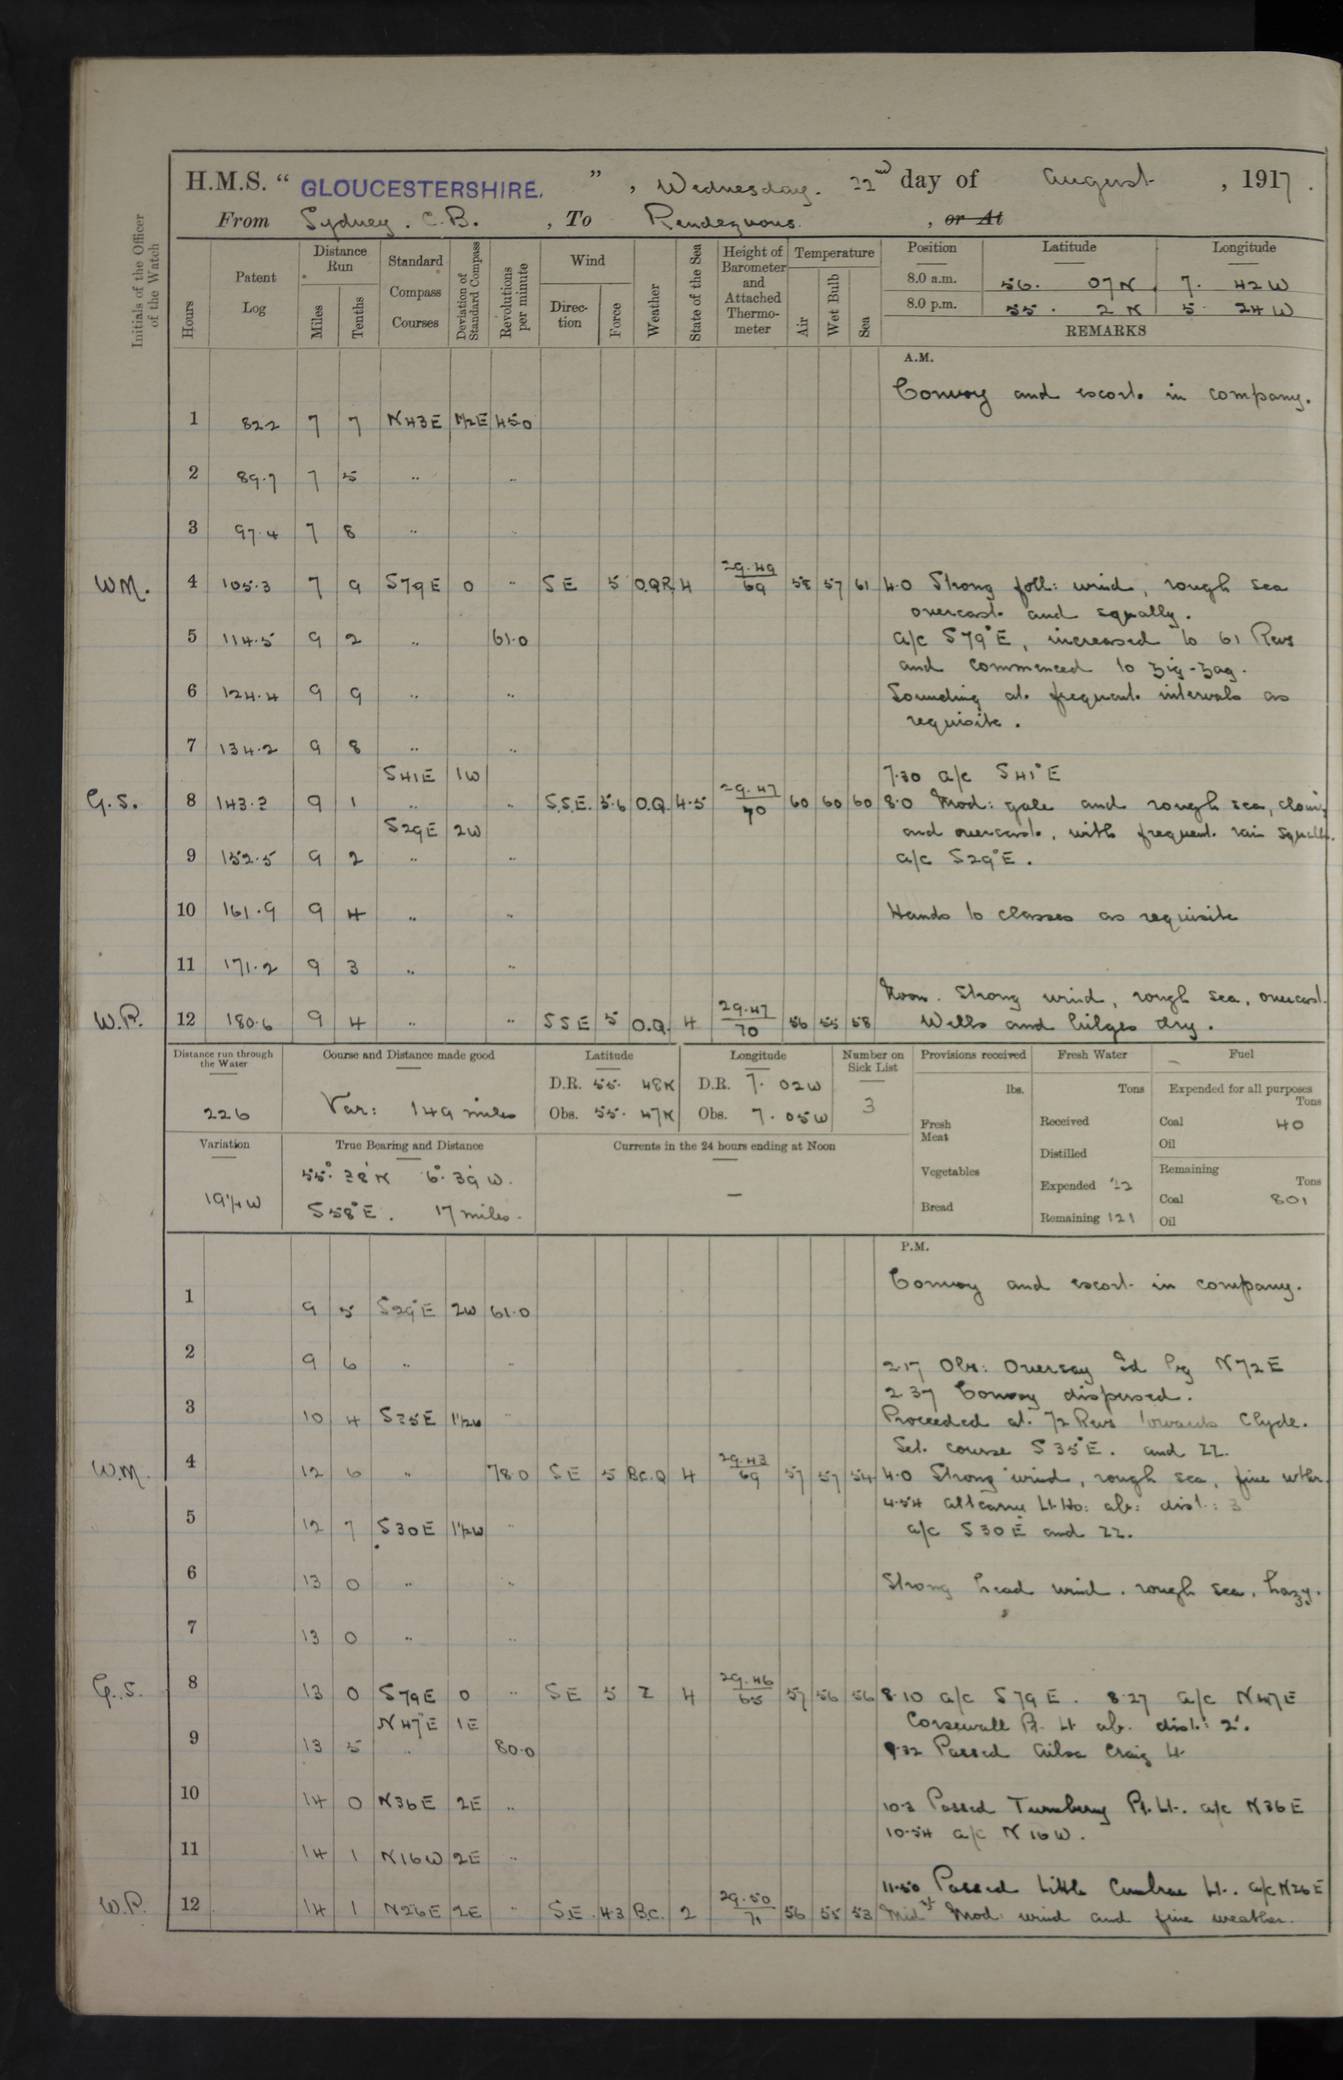 H.M.S. “ GLOUCESTERSHIRE. ” , Wednesday. 22nd day of August , 1917.
From Sydney. C.B. , To Rendezvous. , or At
Initials of the Officer of the Watch
Hours
Patent Log
Distance Run
Miles
Tenths
Standard Compass Courses
Deviation of Standard Compass
Revolutions per minute
Wind
Direction
Force
Weather
State of the Sea
Height of Barometer and Attached Thermometer
Temperature
Air
Wet Bulb
Sea
Position Latitude Longitude
8.0 a.m. 56. 07 N 7. 42 W
8.0 p.m. 55. 2 N 5. 24 W
REMARKS
A.M.
Convoy and escort in company.
1 82.2 7 7 N43E 1½E 45.0
2 89.7 7 5 " "
3 97.4 7 8 "
W.M. 4 105.3 7 9 S79E 0 " SE 5 O.Q.R. 4 29.49 69 58 57 61 4.0 Strong foll: wind, rough sea
overcast and squally.
5 114.5 9 2 " 61.0 a/c S79°E, increased to 61 Revs
and commenced to zig-zag.
6 124.4 9 9 " " Sounding at frequent intervals as
requisite.
7 134.2 9 8 " "
S41E 1W 7.30 a/c S41°E
G.S. 8 143.3 9 1 " " S.S.E. 5.6 O.Q. 4.5 29.47 70 60 60 60 8.0 Mod: gale and rough sea, cloudy
S29E 2W and overcast, with frequent rain squalls.
9 152.5 9 2 " " a/c S29°E.
10 161.9 9 4 " " Hands to classes as requisite
11 171.2 9 3 " "
Noon. Strong wind, rough sea, overcast.
W.P. 12 180.6 9 4 " " SSE 5 O.Q. 4 29.47 70 56 55 58 Wells and bilges dry.
Distance run through the Water
226
Course and Distance made good
Var: 149 miles
Latitude
D.R. 55. 48N
Obs. 55. 47N
Longitude
D.R. 7. 02W
Obs. 7. 05W
Number on Sick List
3
Provisions received
lbs.
Fresh Meat
Vegetables
Bread
Fresh Water
Tons
Received
Distilled
Expended 22
Remaining 121
Fuel
Expended for all purposes
Tons
Coal 40
Oil
Remaining
Tons
Coal 801
Oil
Variation
19¼W
True Bearing and Distance
55° 38'N 6° 39'W.
S58°E. 17 miles.
Currents in the 24 hours ending at Noon
—
P.M.
Convoy and escort in company.
1 9 5 S29°E 2W 61.0
2 9 6 " " 2.17 Obs: Oversay Id Brg N72E
2 37 Convoy dispersed.
3 10 4 S35E 1½W " Proceeded at 72 Revs towards Clyde.
Set course S35°E. and ZZ.
W.M. 4 12 6 " 78.0 SE 5 B.C.Q 4 29.43 69 57 57 54 4.0 Strong wind, rough sea, fine wthr.
4.54 Altcarry Lt. Ho: ab: dist: 3
5 12 7 S30E 1½W " a/c S30E and ZZ.
6 13 0 " " Strong head wind, rough sea, hazy.
7 13 0 " "
G.S. 8 13 0 S79E 0 " SE 5 Z 4 29.46 65 57 56 56 8.10 a/c S79E. 8.27 a/c N47E
N47°E 1E Corsewall Pt. Lt ab. dist: 2'.
9 13 5 " 80.0 9.32 Passed Ailsa Craig Lt.
10 14 0 N36E 2E " 10.3 Passed Turnberry Pt. Lt. a/c N36E
10.54 a/c N16W.
11 14 1 N16W 2E "
11.50 Passed Little Cumbrae Lt. a/c N26E
W.P. 12 14 1 N26E 2E " S.E. 4.3 B.C. 2 29.50 71 56 55 53 Midt Mod: wind and fine weather.